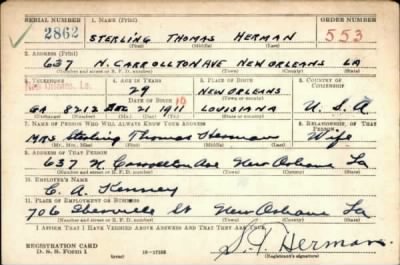 SERIAL NUMBER 1. NAME (Print) ORDER NUMBER
2862 STERLING THOMAS HERMAN 553
(First) (Middle) (Last)
2. ADDRESS (Print)
637 N. CARROLLTON AVE NEW ORLEANS LA
(Number and street or R. F. D. number) (Town) (County) (State)
3. TELEPHONE 4. AGE IN YEARS 5. PLACE OF BIRTH 6. COUNTRY OF CITIZENSHIP
New Orleans, La. 29 NEW ORLEANS
DATE OF BIRTH (Town or county)
GA 8212 DEC 21 1911 LOUISIANA U. S. A
(Exchange) (Number) (Mo.) (Day) (Yr.) (State or country)
7. NAME OF PERSON WHO WILL ALWAYS KNOW YOUR ADDRESS 8. RELATIONSHIP OF THAT PERSON
Mrs Sterling Thomas Herman Wife
(Mr., Mrs., Miss) (First) (Middle) (Last)
9. ADDRESS OF THAT PERSON
637 N. Carrollton Ave New Orleans La
(Number and street or R. F. D. number) (Town) (County) (State)
10. EMPLOYER'S NAME
C. A. Kenney
11. PLACE OF EMPLOYMENT OR BUSINESS
706 St New Orleans La
(Number and street or R. F. D. number) (Town) (County) (State)
I AFFIRM THAT I HAVE VERIFIED ABOVE ANSWERS AND THAT THEY ARE TRUE.
REGISTRATION CARD
D. S. S. Form 1 S. T. Herman
(over) 16-17105 (Registrant's signature)